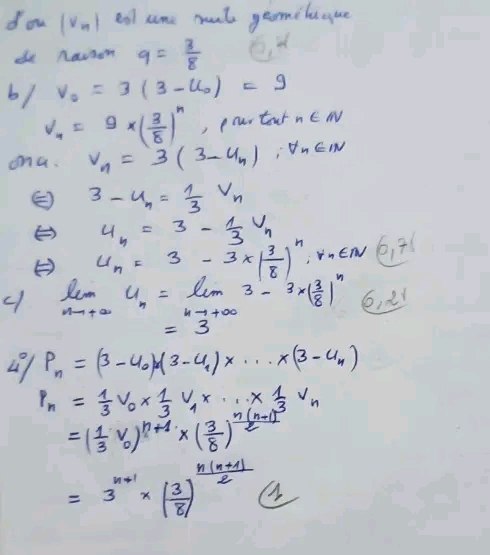 d'où (Vn) est une suite géométrique
de raison q = 3/8
b/ V₀ = 3 (3 - U₀) = 9
Vn = 9 × (3/8)^n , pour tout n ∈ IN
on a. Vn = 3 (3 - Un) ; ∀n ∈ IN
⇔ 3 - Un = 1/3 Vn
⇔ Un = 3 - 1/3 Vn
⇔ Un = 3 - 3 × (3/8)^n , ∀n ∈ IN
c/ lim n→+∞ Un = lim n→+∞ 3 - 3×(3/8)^n
= 3
4°/ Pn = (3 - U₀)×(3 - U₁) × ... × (3 - Un)
Pn = 1/3 V₀ × 1/3 V₁ × ... × 1/3 Vn
= (1/3 V₀)^n+1 × (3/8)^n(n+1)/2
= 3^n+1 × (3/8)^n(n+1)/2 1